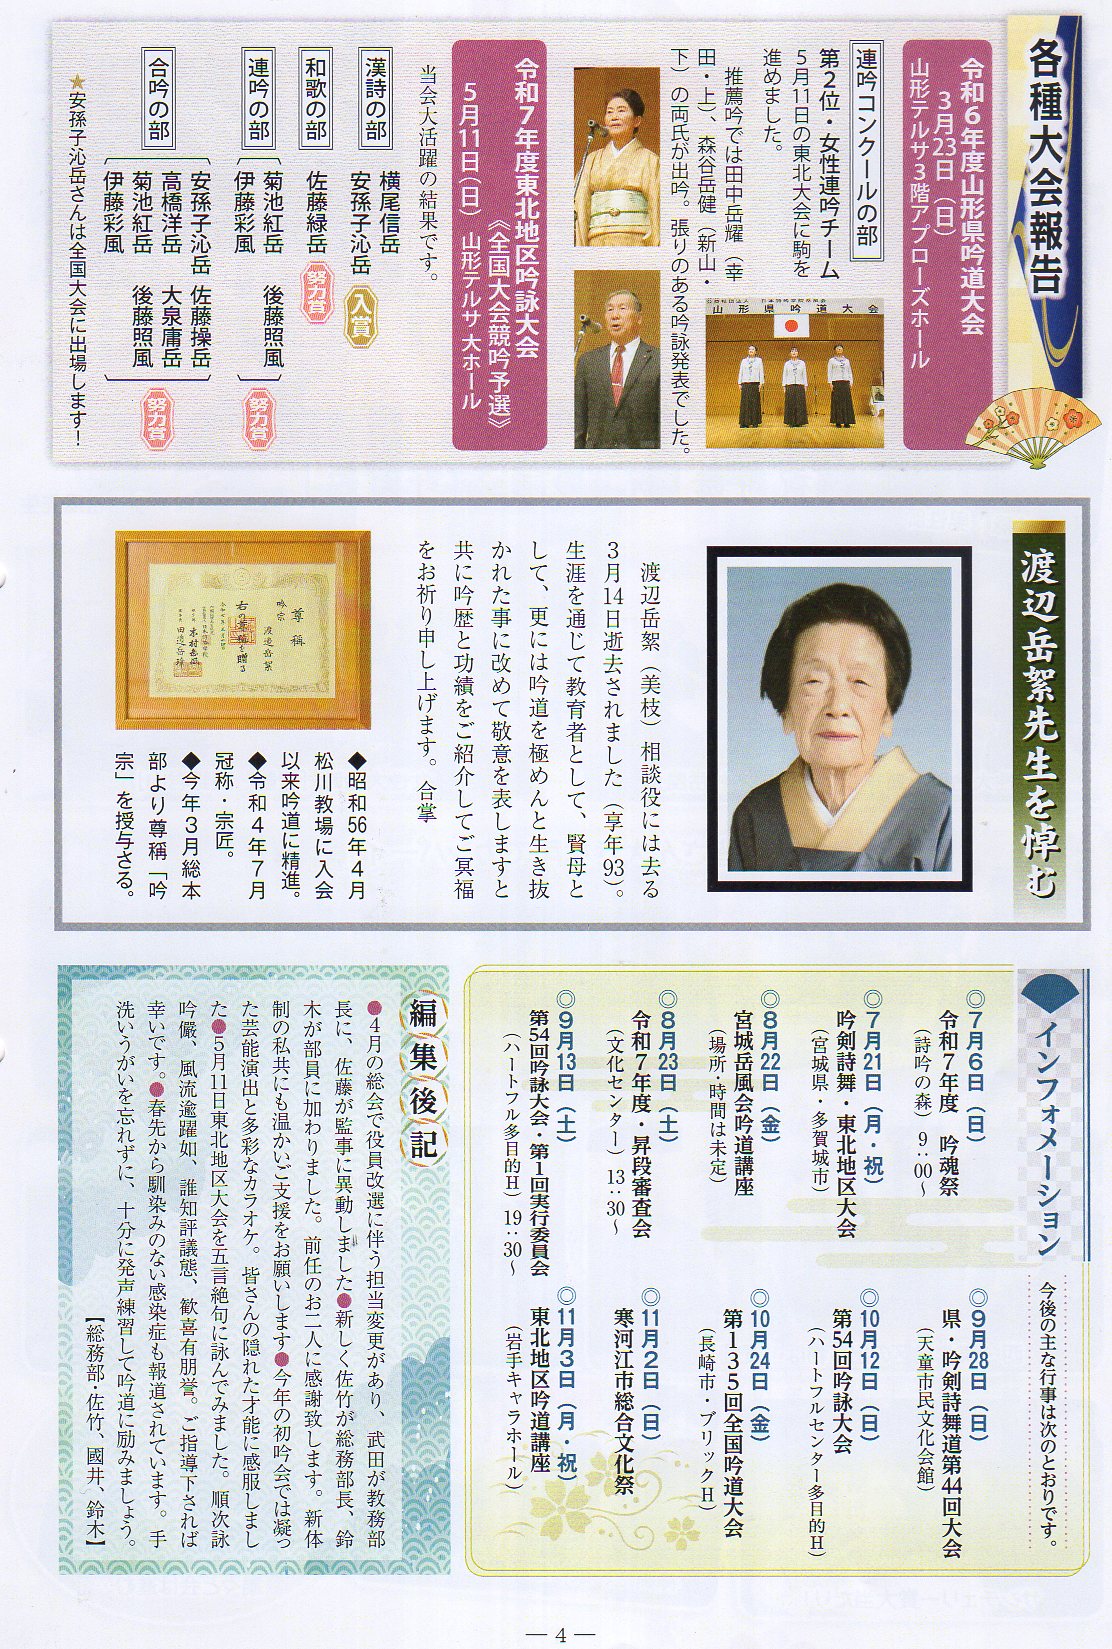 各種大会報告
令和６年度山形県吟道大会
３月23日（日）
山形テルサ３階アプローズホール
連吟コンクールの部
第２位・女性連吟チーム
５月11日の東北大会に駒を
進めました。
推薦吟では田中岳耀（幸
田・上）、森谷岳健（新山・
下）の両氏が出吟。張りのある吟詠発表でした。
山形県吟道大会
令和７年度東北地区吟詠大会
《全国大会競吟予選》
５月11日（日）　山形テルサ大ホール
当会大活躍の結果です。
漢詩の部
横尾信岳
安孫子沁岳
入賞
和歌の部
佐藤緑岳
努力賞
連吟の部
菊池紅岳　後藤照風
伊藤彩風
努力賞
合吟の部
安孫子沁岳　佐藤操岳
高橋洋岳　大泉庸岳
菊池紅岳　後藤照風
伊藤彩風
努力賞
★安孫子沁岳さんは全国大会に出場します！
渡辺岳絮先生を悼む
渡辺岳絮（美枝）相談役には去る
３月14日逝去されました（享年93）。
生涯を通じて教育者として、賢母と
して、更には吟道を極めんと生き抜
かれた事に改めて敬意を表しますと
共に吟歴と功績をご紹介してご冥福
をお祈り申し上げます。合掌
尊稱
吟宗
渡邉岳絮
右の尊稱を贈る
◆昭和56年４月
松川教場に入会
以来吟道に精進。
◆令和４年７月
冠称・宗匠。
◆今年３月総本
部より尊稱「吟
宗」を授与さる。
インフォメーション
今後の主な行事は次のとおりです。
◎７月６日（日）
令和７年度　吟魂祭
（詩吟の森）９：00～
◎７月21日（月・祝）
吟剣詩舞・東北地区大会
（宮城県・多賀城市）
◎８月22日（金）
宮城岳風会吟道講座
（場所・時間は未定）
◎８月23日（土）
令和７年度・昇段審査会
（文化センター）13：30～
◎９月13日（土）
第54回吟詠大会・第１回実行委員会
（ハートフル多目的Ｈ）19：30～
◎９月28日（日）
県・吟剣詩舞道第44回大会
（天童市民文化会館）
◎10月12日（日）
第54回吟詠大会
（ハートフルセンター多目的Ｈ）
◎10月24日（金）
第１３５回全国吟道大会
（長崎市・ブリックＨ）
◎11月２日（日）
寒河江市総合文化祭
◎11月３日（月・祝）
東北地区吟道講座
（岩手キャラホール）
編集後記
●４月の総会で役員改選に伴う担当変更があり、武田が教務部
長に、佐藤が監事に異動しました●新しく佐竹が総務部長、鈴
木が部員に加わりました。前任のお二人に感謝致します。新体
制の私共にも温かいご支援をお願いします●今年の初吟会では凝っ
た芸能演出と多彩なカラオケ。皆さんの隠れた才能に感服しまし
た●５月11日東北地区大会を五言絶句に詠んでみました。順次詠
吟儼、風流逾躍如、誰知評議態、歓喜有朋誉。ご指導下されば
幸いです。●春先から馴染みのない感染症も報道されています。手
洗いうがいを忘れずに、十分に発声練習して吟道に励みましょう。
【総務部・佐竹、國井、鈴木】
― 4 ―